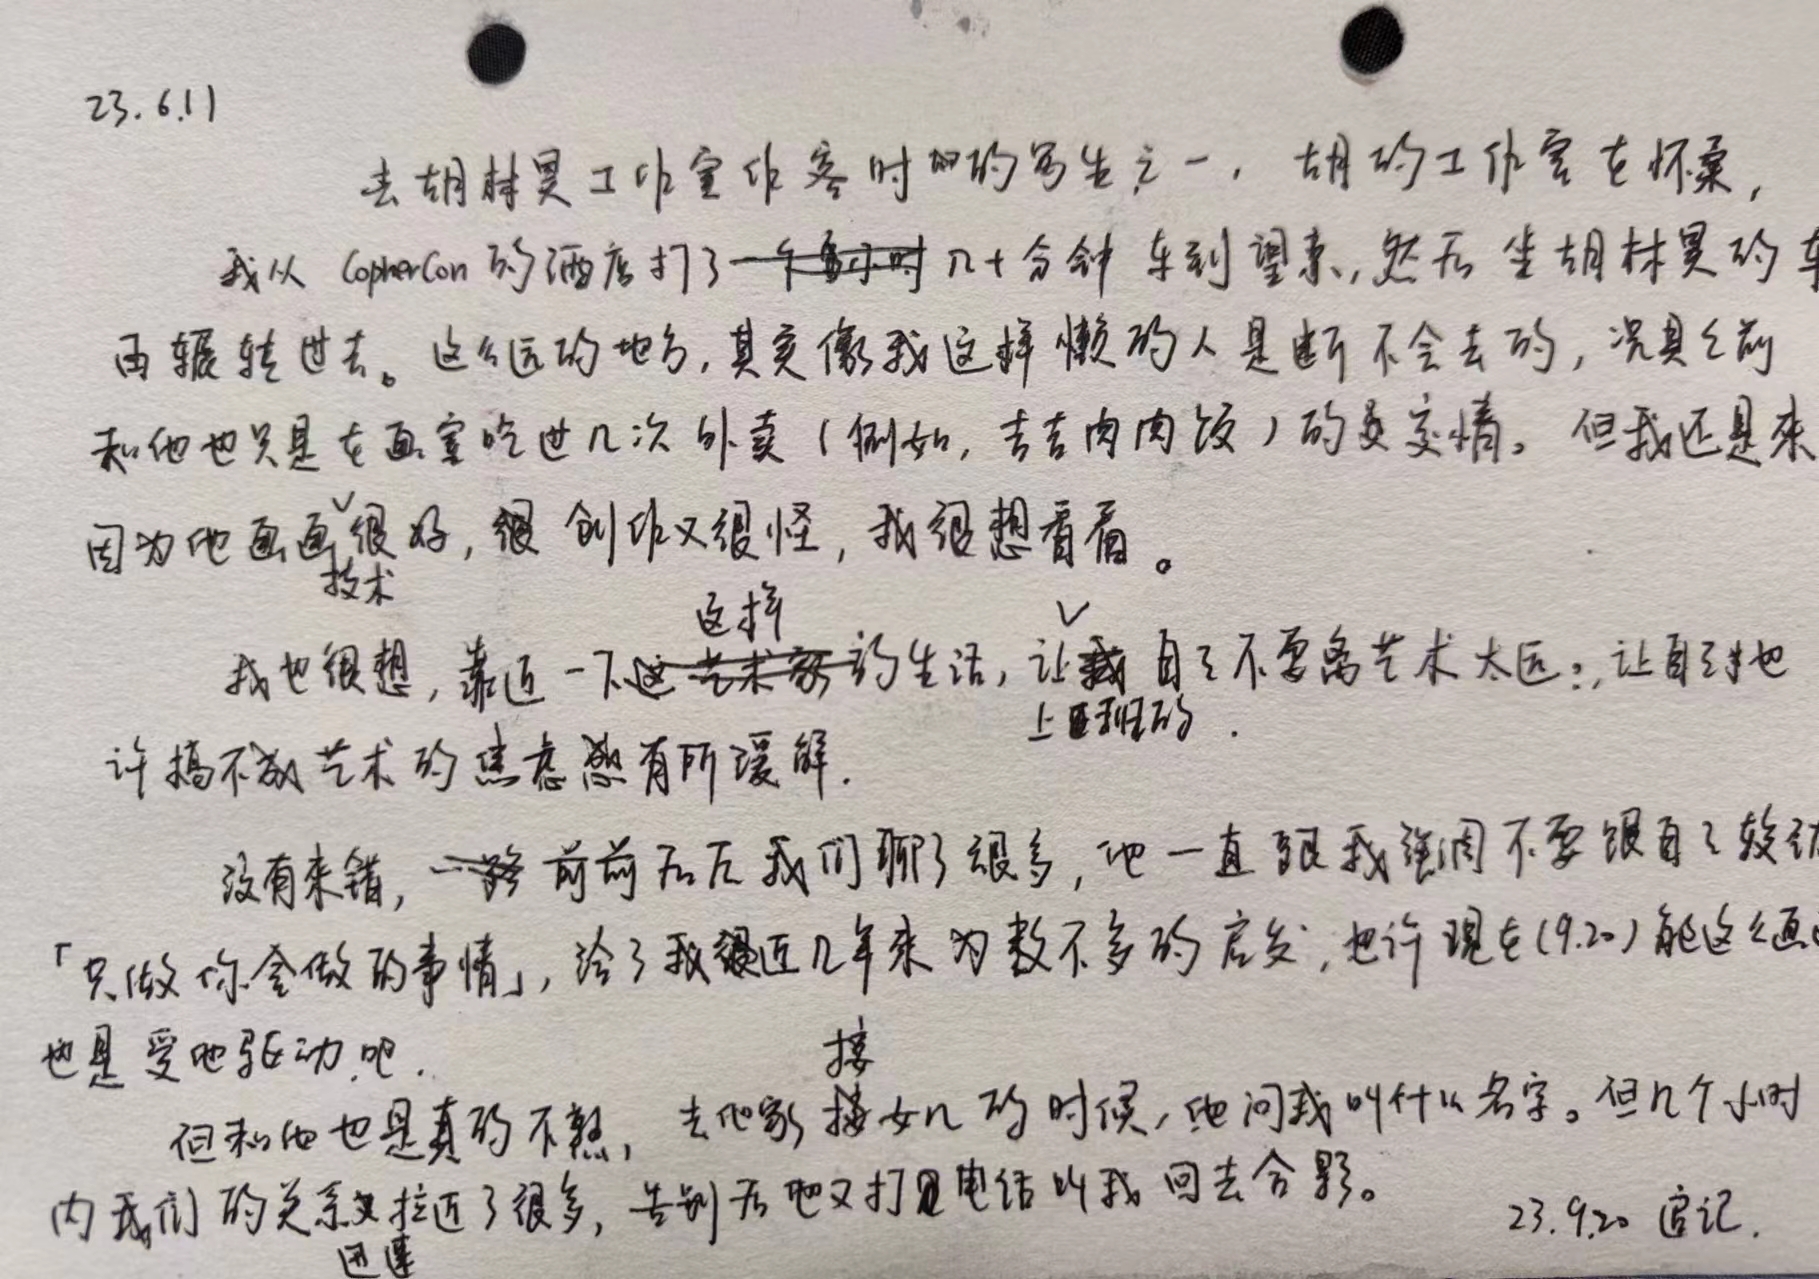 23.6.11
去胡林昊工作室作客时的写生之一，胡的工作室在怀柔，
我从 GopherCon 的酒店打了一个多小时几十分钟车到望京，然后坐胡林昊的车
再辗转过去。这么远的地方，其实像我这样懒的人是断不会去的，况且之前
和他也只是在画室吃过几次外卖（例如，吉吉肉肉饭）的交情。但我还是来
因为他画画很好，创作又很怪，我很想看看。
技术
这样
我也很想，靠近一下这艺术家的生活，让我自己不要离艺术太远，让自己也
上班的
许搞不成艺术的焦虑感有所缓解.
没有来错，一路前前后后我们聊了很多，他一直跟我强调不要跟自己较
「只做你会做的事情」，给了我近几年来为数不多的启发，也许现在(9.20)能这么画
也是受他驱动吧.
接
但和他也是真的不熟，去他家接女儿的时候，他问我叫什么名字。但几个小时
内我们的关系拉近了很多，告别后他又打电话叫我回去合影。
迅速
23.9.20 追记.